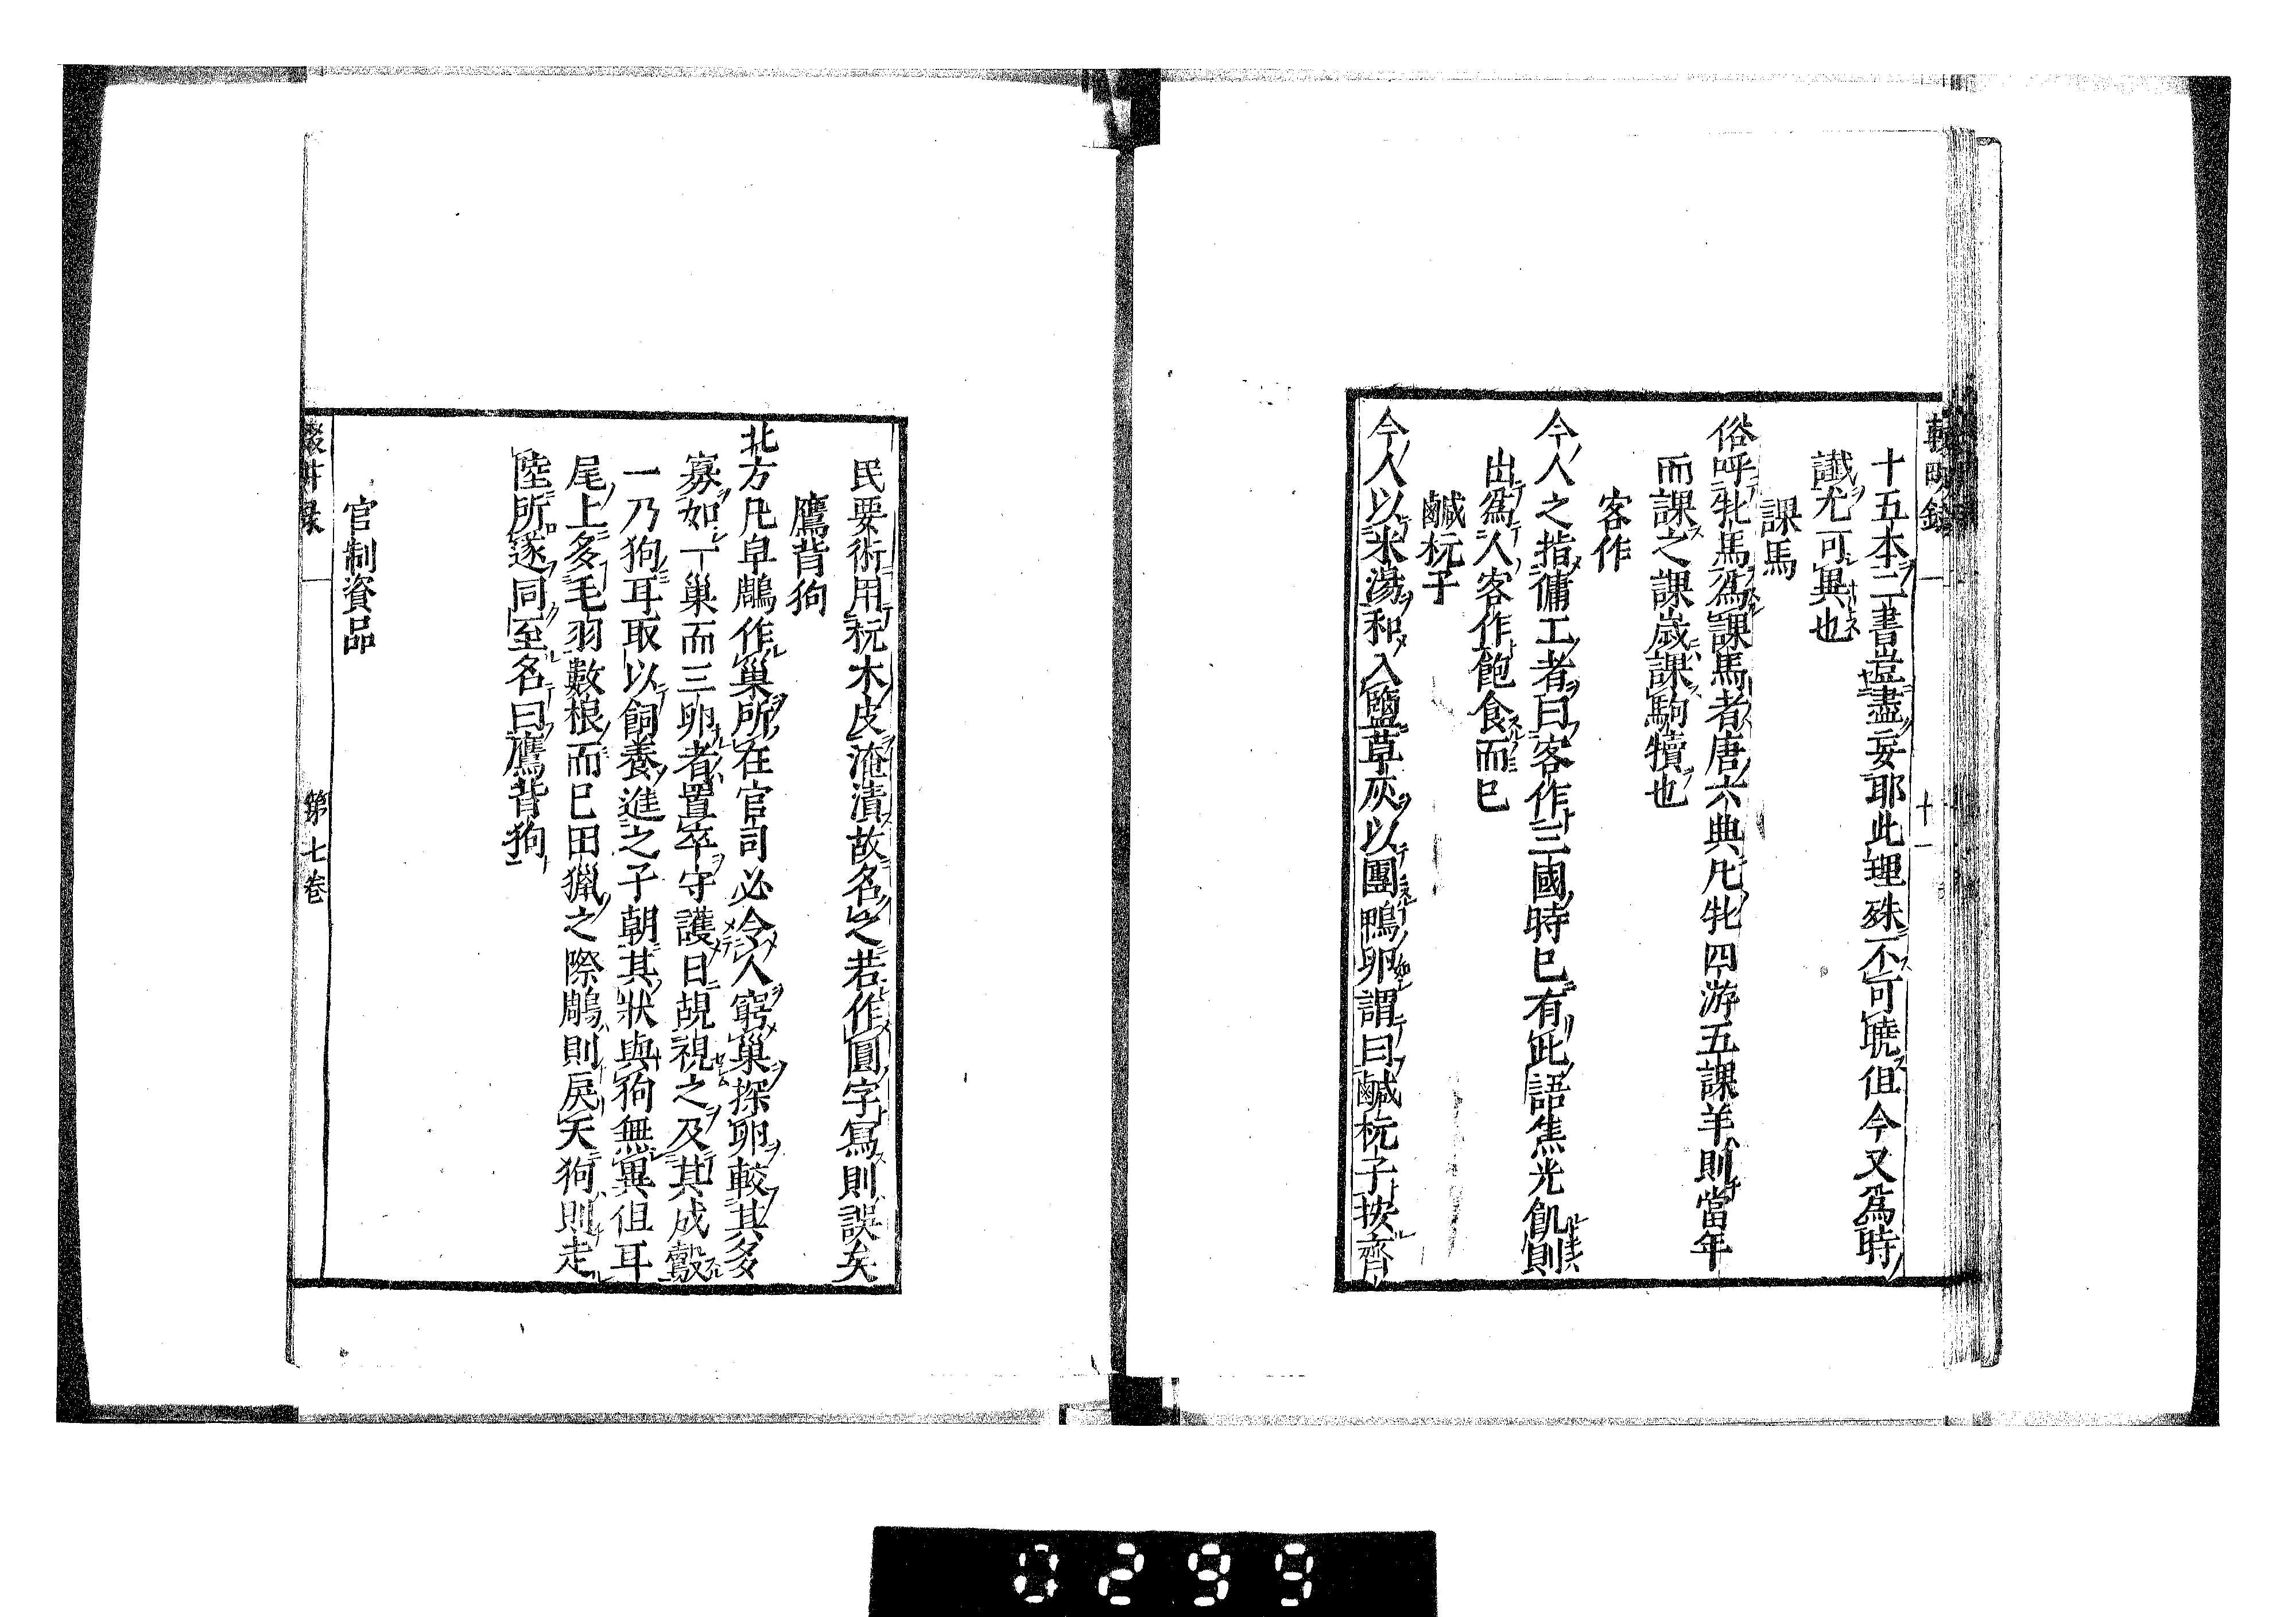 輟畊録
十一
十五本二書豈盡妄耶此理殊不可曉伹今又爲時
讖尤可異也
課馬
俗呼牝馬爲課馬者唐六典凡牝四游五課羊則當年
而課之課歲課駒犢也
客作
今人之指傭工者曰客作三國時已有此語焦光飢則
出爲人客作飽食而已
鹹杬子
今人以米湯和入鹽草灰以團鴨卵謂曰鹹杬子按齊
民要術用杬木皮淹漬故名之若作圓字寫則誤矣
鷹背狗
北方凡皁鵰作巢所在官司必令人窮巢探卵較其多
寡如一巢而三卵者置卒守護日覘視之及其成鷇
一乃狗耳取以飼養進之于朝其狀與狗無異伹耳
尾上多毛羽數根而已田獵之際鵰則戾天狗則走
陸所逐同至名曰鷹背狗
官制資品
輟畊録
第七卷
0299